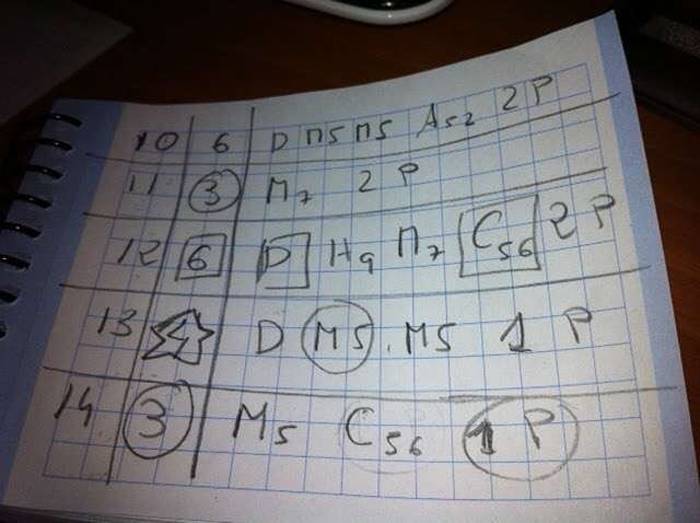 10 6 D M5 M5 A52 2 P
11 3 M7 2 P
12 6 D H9 M7 C56 2 P
13 4 D M5 . M5 1 P
14 3 M5 C56 1 P